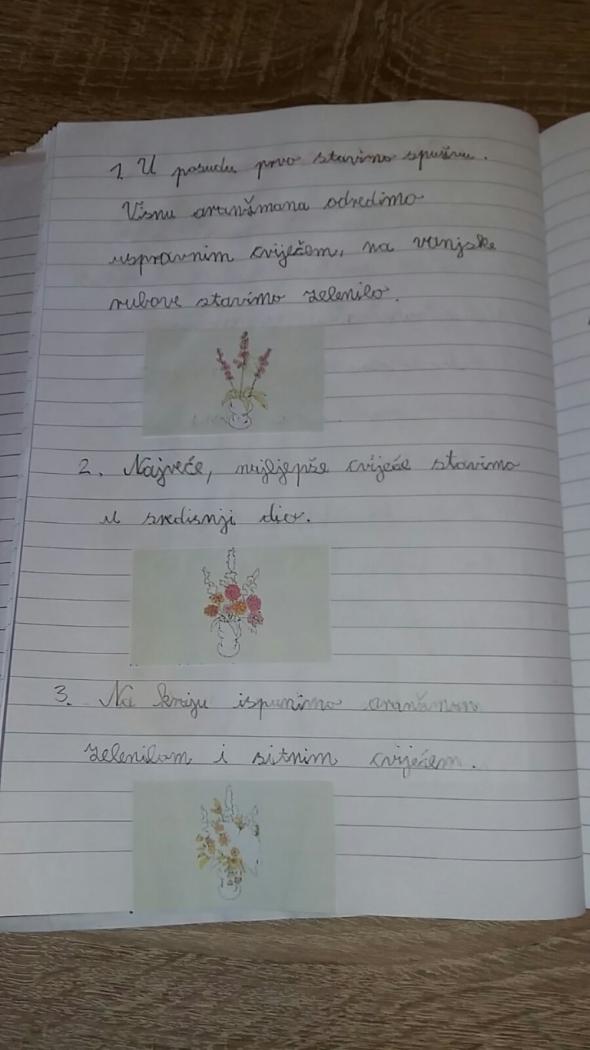 1. U posudu prvo stavimo spužvu.
Visnu aranžmana odredimo
uspravnim cvijećem, na vanjske
rubove stavimo zelenilo.
2. Najveće, najljepše cvijeće stavimo
u sredisnji dio.
3. Na kraju ispunimo aranžman
zelenilom i sitnim cvijećem.